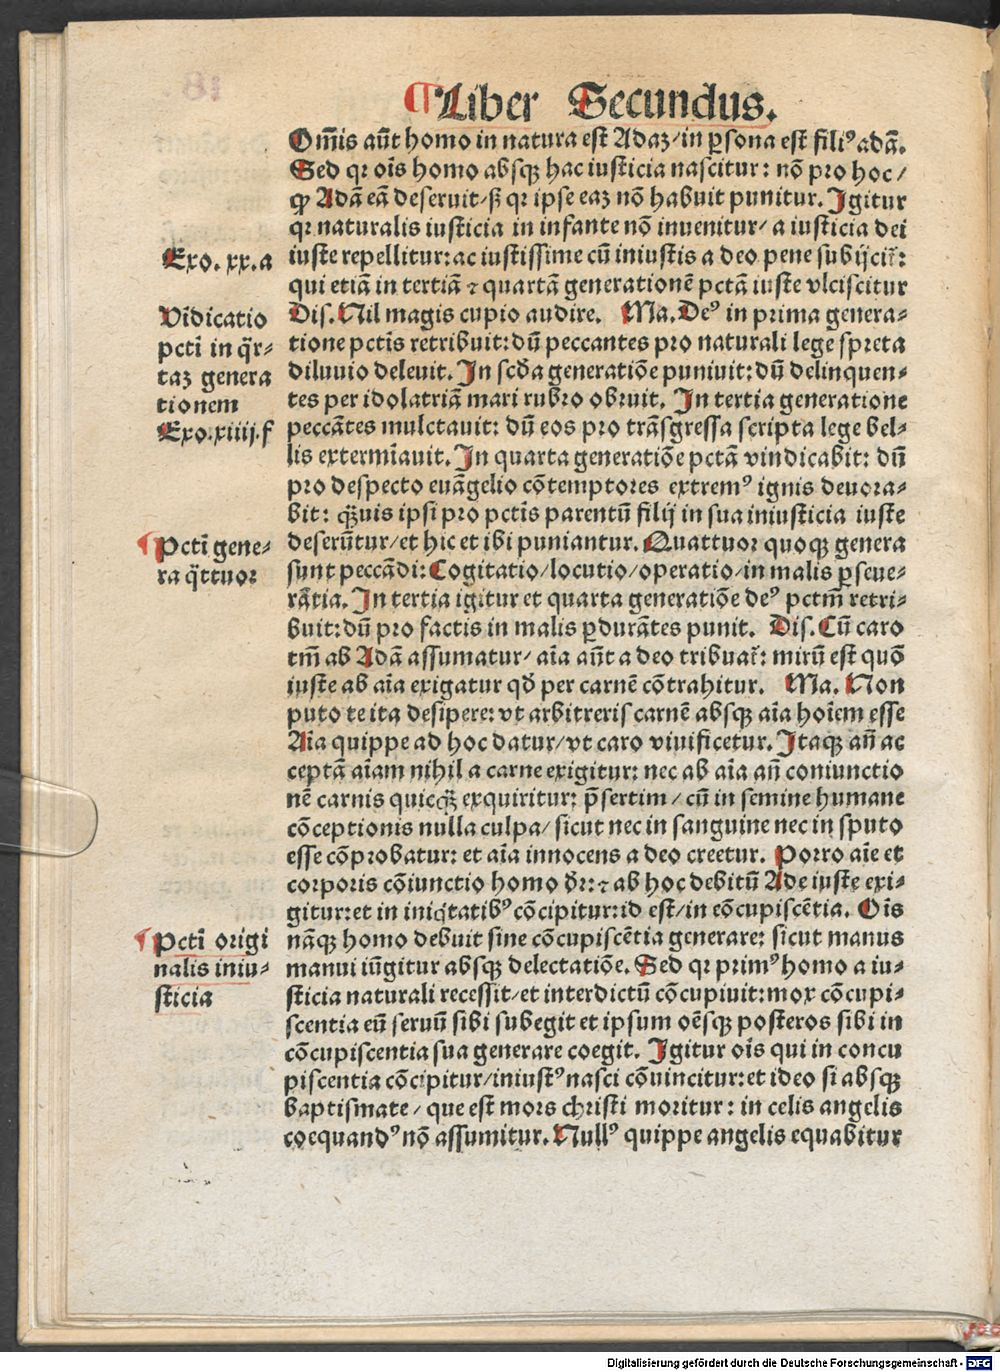 ¶Liber Secundus.
Om̄is aūt homo in natura est Adaꝫ/in ꝑsona est filiꝰ adã.
Sed qꝛ oīs homo absqꝫ hac iusticia nascitur: nõ pro hoc/
ꝙ Adã eã deseruit/ sꝫ qꝛ ipse eaꝫ nõ habuit punitur. Igitur
qꝛ naturalis iusticia in infante nõ inuenitur/ a iusticia dei
Exo. xx. a
iuste repellitur: ac iustissime cū iniustis a deo pene subijcit̃:
qui etiã in tertiã ⁊ quartã generationẽ pctã iuste vlciscitur
Vīdicatio
pcti in q̃r-
taꝫ genera
tionem
Exo.xiiij.f
Dis. Nil magis cupio audire. Ma. Deꝰ in prima genera-
tione pctīs retribuit: dū peccantes pro naturali lege spreta
diluuio deleuit. In scd̃a generatiõe puniuit: dū delinquen-
tes per idolatriã mari rubro obruit. In tertia generatione
peccãtes mulctauit: dū eos pro trãsgressa scripta lege bel-
lis extermīauit. In quarta generatiõe pctã vindicabit: dū
pro despecto euãgelio cõtemptores extremꝰ ignis deuora-
bit: q̃ꝫuis ipsi pro pctīs parentū filij in sua iniusticia iuste
¶Pcti gene-
ra q̃ttuor
deserūtur/ et hic et ibi puniantur. Quattuor quoqꝫ genera
sunt peccãdi: Cogitatio/ locutio/ operatio/ in malis ꝑseue-
rãtia. In tertia igitur et quarta generatiõe deꝰ pctm̄ retri-
buit: dū pro factis in malis ꝑdurãtes punit. Dis. Cū caro
tm̄ ab Adã assumatur/ aīa aūt a deo tribuat̃: mirū est quõ
iuste ab aīa exigatur qd̃ per carnẽ cõtrahitur. Ma. Non
puto te ita desipere: vt arbitreris carnẽ absqꝫ aīa hoīem esse
Aīa quippe ad hoc datur/ vt caro viuificetur. Itaqꝫ añ ac
ceptã aīam nihil a carne exigitur: nec ab aīa añ coniunctio
nẽ carnis quicq̃ꝫ exquiritur: p̃sertim/ cū in semine humane
cõceptionis nulla culpa/ sicut nec in sanguine nec in sputo
esse cõprobatur: et aīa innocens a deo creetur. Porro aīe et
corporis cõiunctio homo dr̃: ⁊ ab hoc debitū Ade iuste exi-
gitur: et in iniqͥtatibꝰ cõcipitur: id est/ in cõcupiscẽtia. Oīs
¶Pcti origi
nalis iniu-
sticia
nãqꝫ homo debuit sine cõcupiscẽtia generare: sicut manus
manui iūgitur absqꝫ delectatiõe. Sed qꝛ primꝰ homo a iu-
sticia naturali recessit/ et interdictū cõcupiuit: mox cõcupi-
scentia eū seruū sibi subegit et ipsum oẽsqꝫ posteros sibi in
cõcupiscentia sua generare coegit. Igitur oīs qui in concu
piscentia cõcipitur/ iniustꝰ nasci cõuincitur: et ideo si absqꝫ
baptismate/ que est mors christi moritur: in celis angelis
coequandꝰ nõ assumitur. Nullꝰ quippe angelis equabitur
Digitalisierung gefördert durch die Deutsche Forschungsgemeinschaft - DFG